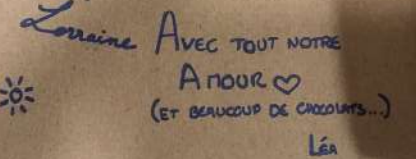 Lorraine
AVEC TOUT NOTRE
AMOUR
(ET BEAUCOUP DE CHOCOLATS...)
LÉA